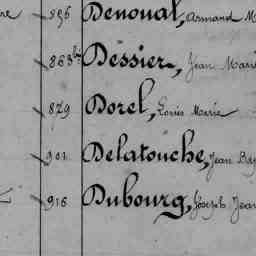 896 Denoual, Armand M
863 bis Dessier, Jean Marie
879 Dorel, Louis Marie
901 Delatouche, Jean Bap
916 Dubourg, Joseph Jean